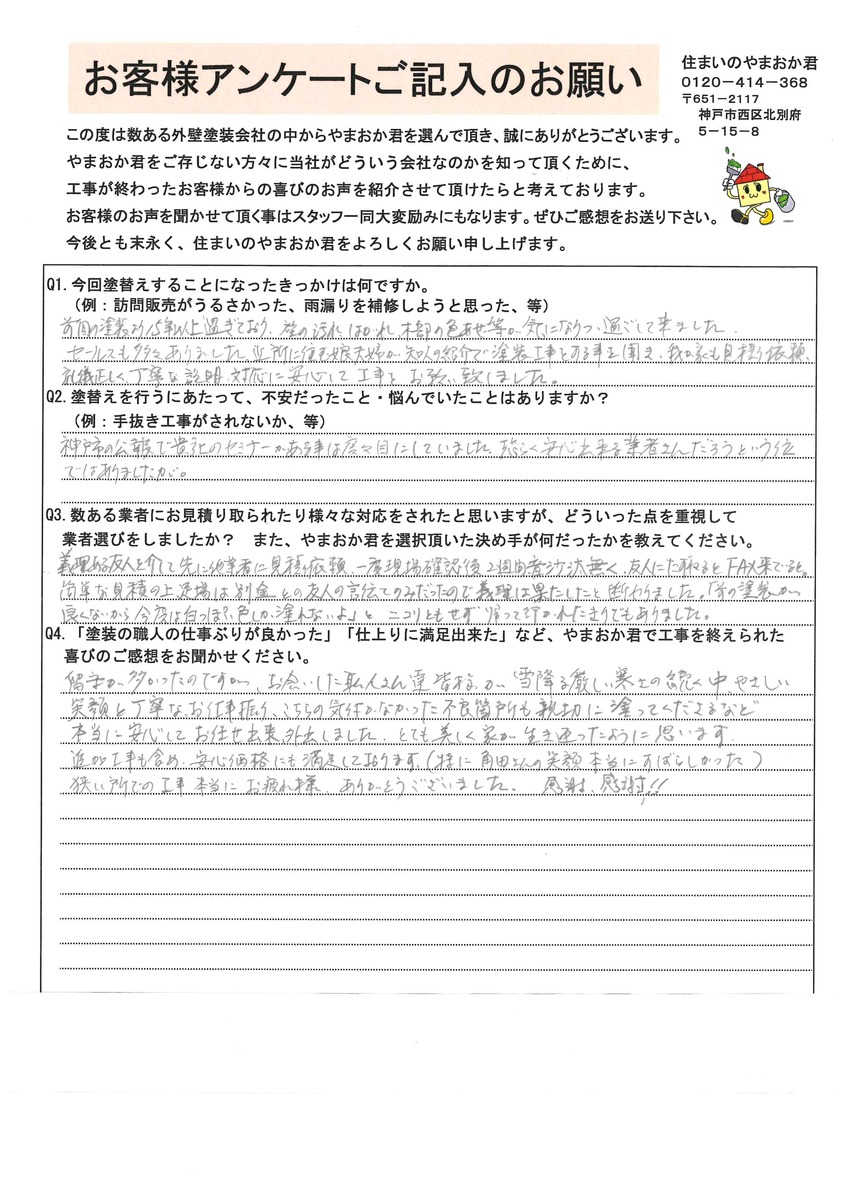 お客様アンケートご記入のお願い
住まいのやまおか君
0120-414-368
〒651-2117
神戸市西区北別府
5-15-8
この度は数ある外壁塗装会社の中からやまおか君を選んで頂き、誠にありがとうございます。
やまおか君をご存じない方々に当社がどういう会社なのかを知って頂くために、
工事が終わったお客様からの喜びのお声を紹介させて頂けたらと考えております。
お客様のお声を聞かせて頂く事はスタッフ一同大変励みにもなります。ぜひご感想をお送り下さい。
今後とも末永く、住まいのやまおか君をよろしくお願い申し上げます。
Q1. 今回塗替えすることになったきっかけは何ですか。
（例：訪問販売がうるさかった、雨漏りを補修しようと思った、等）
前回の塗装より15年以上過ぎており、壁の汚れ はがれ 木部の色あせ等が気になりつつ過ごして来ました。
セールスも多々ありました。近所に住む娘夫婦が知人の紹介で塗装工事をする事を聞き、我が家も見積り依頼、
礼儀正しく丁寧な説明、対応に安心して工事をお願い致しました。
Q2. 塗替えを行うにあたって、不安だったこと・悩んでいたことはありますか？
（例：手抜き工事がされないか、等）
神戸市の公報で貴社のセミナーがある事は度々目にしていました。恐らく安心出来る業者さんだろうという位
ではありましたが。
Q3. 数ある業者にお見積り取られたり様々な対応をされたと思いますが、どういった点を重視して
業者選びをしましたか？　また、やまおか君を選択頂いた決め手が何だったかを教えてください。
義理ある友人を介して先に他業者に見積り依頼、一度現場確認後2週間音沙汰無く、友人にたずねるとFAX来ていると。
簡単な見積の上、足場は別金 との友人の言伝てのみだったので義理は果たしたと断わりました。「前の塗装が
良くないから今度は白っぽい色しか塗れないよ」と ニコリともせず 帰って行かれたきりでもありました。
Q4. 「塗装の職人の仕事ぶりが良かった」「仕上りに満足出来た」など、やまおか君で工事を終えられた
喜びのご感想をお聞かせください。
留守が多かったのですが、お会いした職人さん達皆様が 雪降る厳しい寒さの続く中、やさしい
笑顔と丁寧なお仕事振り、こちらの気付かなかった不良箇所も親切に塗ってくださるなど
本当に安心してお任せ出来外出しました。とても美しく家が生き返ったように思います。
追加工事も含め、安心価格にも満足しております。(特に角田さんの笑顔本当にすばらしかった)
狭い所での工事本当にお疲れ様、ありがとうございました。 感謝、感謝!!